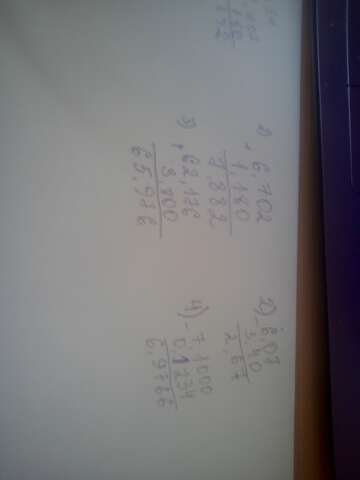 1) + 6,702
1,180
7,882
2) - 6,07
3,40
2,67
3) + 62,176
3,800
65,976
4) - 7,1000
0,1234
6,9766